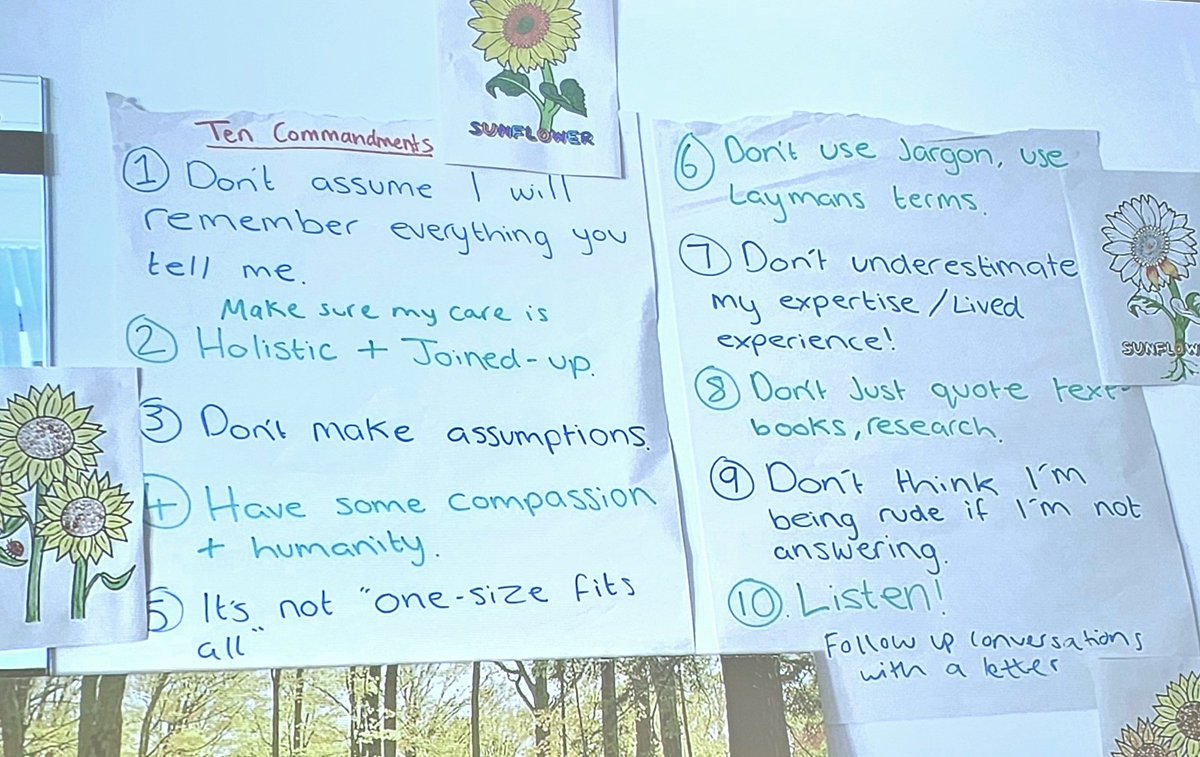 SUNFLOWER
Ten Commandments
1 Don't assume I will
remember everything you
tell me.
Make sure my care is
2 Holistic + Joined-up.
3 Don't make assumptions.
4 Have some compassion
+ humanity.
5 It's not "one-size fits
all"
6 Don't use Jargon, use
Laymans terms.
7 Don't underestimate
my expertise/Lived
experience!
8 Don't Just quote text-
books, research.
9 Don't think I'm
being rude if I'm not
answering.
10. Listen!
Follow up conversations
with a letter
SUNFLOW